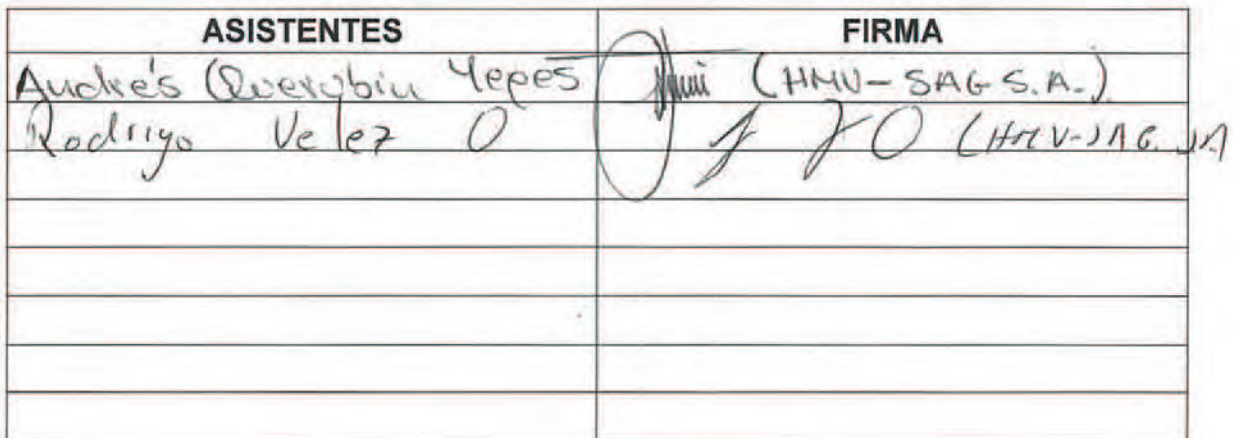 ASISTENTES FIRMA
Andrés Querubin Yepes (HMV-SAG S.A.)
Rodrigo Velez O (HMV-SAG. SA